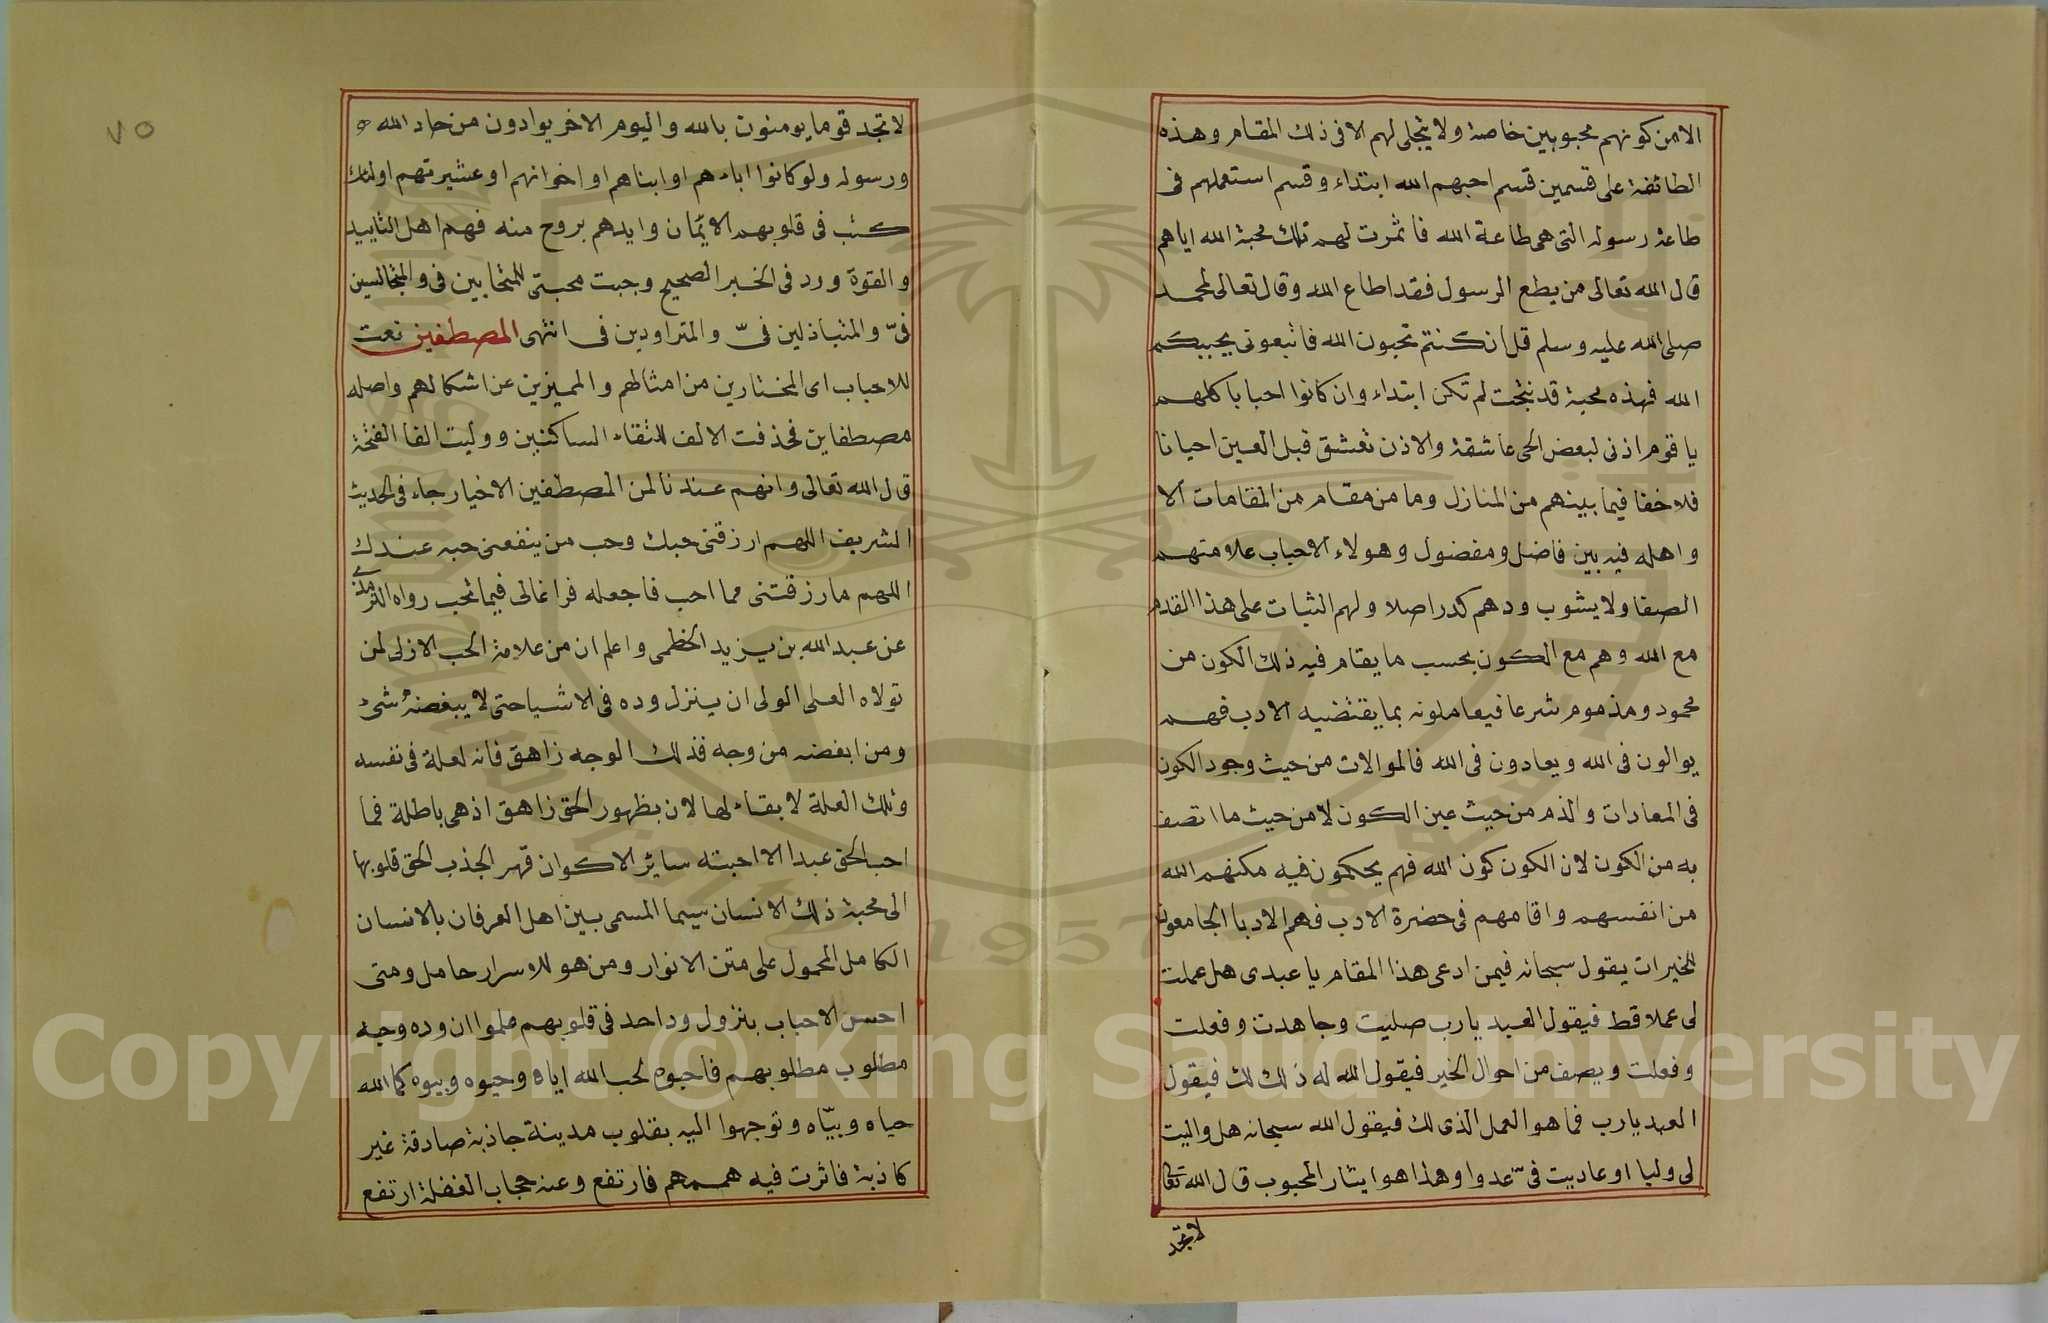 الا من كونهم محبوبين خاصة ولا يتجلى لهم الا فى ذلك المقام وهذه
الطائفة على قسمين قسم احبهم الله ابتداء وقسم استعملهم فى
طاعة رسوله التى هى طاعة الله فاثمرت لهم تلك محبة الله اياهم
قال الله تعالى من يطع الرسول فقد اطاع الله وقال تعالى لمحمد
صلى الله عليه وسلم قل ان كنتم تحبون الله فاتبعونى يحببكم
الله فهذه محبة قد نتجت لم تكن ابتداء وان كانوا احبابا كلهم
يا قوم اذنى لبعض الحى عاشقة والاذن تعشق قبل العين احيانا
فلا خفا فيما بينهم من المنازل وما من مقام من المقامات الا
واهله فيه بين فاضل ومفضول وهولاء الاحباب علامتهم
الصفا ولا يشوب ودهم كدر اصلا ولهم الثبات على هذا القدم
مع الله وهم مع الكون بحسب ما يقام فيه ذلك الكون من
محمود ومذموم شرعا فيعاملونه بما يقتضيه الادب فهم
يوالون فى الله ويعادون فى الله فالموالات من حيث وجود الكون
فى المعادات والذم من حيث عين الكون لا من حيث ما اتصف
به من الكون لان الكون كون الله فهم يحكمون فيه مكنهم الله
من انفسهم واقامهم فى حضرة الادب فهم الادبا الجامعون
للخيرات يقول سبحانه فيمن ادعى هذا المقام يا عبدى هل عملت
لى عملا قط فيقول العبد يا رب صليت وجاهدت وفعلت
وفعلت ويصف من احوال الخير فيقول الله له ذلك لك فيقول
العبد يا رب فما هو العمل الذى لك فيقول الله سبحانه هل واليت
لى وليا او عاديت فىّ عدوا وهذا هو ايثار المحبوب قال الله تعالى
لا تجد
٧٥
لا تجد قوما يومنون بالله واليوم الاخر يوادون من حاد الله
ورسوله ولو كانوا اباءهم او ابناهم او اخوانهم او عشيرتهم اولئك
كتب فى قلوبهم الايمان وايدهم بروح منه فهم اهل التاييد
والقوة ورد فى الخبر الصحيح وجبت محبتى للمتحابين فى والمتجالسين
فىّ والمتباذلين فىّ والمتراودين فى انتهى المصطفين نعت
للاحباب اى المختارين من امثالهم والمميزين عن اشكالهم واصله
مصطفاين فحذفت الالف لالتقاء الساكنين ووليت الفا الفتحة
قال الله تعالى وانهم عندنا لمن المصطفين الاخيار جاء فى الحديث
الشريف اللهم ارزقنى حبك وحب من ينفعنى حبه عندك
اللهم ما رزقتنى مما احب فاجعله فراغا لى فيما تحب رواه الترمذى
عن عبد الله بن يزيد الخطمى واعلم ان من علامة الحب الازلى لمن
تولاه العلى الولى ان ينزل وده فى الاشيا حتى لا يبغضه شئ
ومن ابغضه من وجه فذلك الوجه زاهق فانه لعلة فى نفسه
وتلك العلة لا بقاء لها لان بظهور الحق زاهق اذ هى باطلة فما
احب الحق عبدا الا احبته سائر الاكوان قهر الجذب الحق قلوبها
الى محبة ذلك الانسان سيما المسمى بين اهل العرفان بالانسان
الكامل المحمول على متن الانوار ومن هو للاسرار حامل ومتى
احسن الاحباب بنزول ود احد فى قلوبهم علموا ان وده وجه
مطلوب مطلوبهم فاحبوه لحب الله اياه وحيوه وبيوه كما الله
حياه وبيّاه وتوجهوا اليه بقلوب مدينة جاذبة صادقة غير
كاذبة فاثرت فيه هممهم فارتفع وعنه حجاب الغفلة ارتفع
Copyright © King Saud University
1957